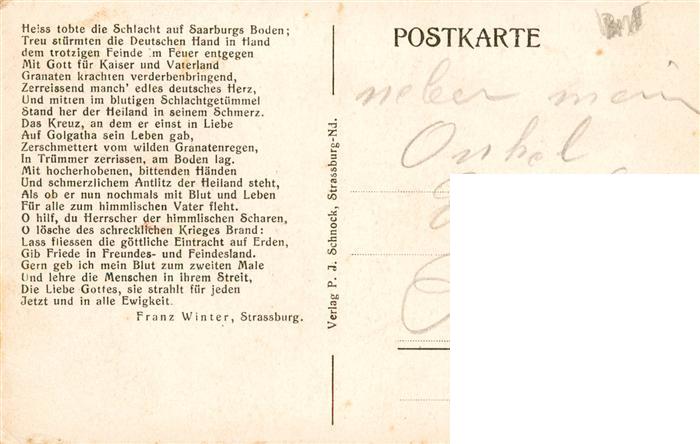 Heiss tobte die Schlacht auf Saarburgs Boden;
Treu stürmten die Deutschen Hand in Hand
dem trotzigen Feinde im Feuer entgegen
Mit Gott für Kaiser und Vaterland
Granaten krachten verderbenbringend,
Zerreissend manch' edles deutsches Herz,
Und mitten im blutigen Schlachtgetümmel
Stand her der Heiland in seinem Schmerz.
Das Kreuz, an dem er einst in Liebe
Auf Golgatha sein Leben gab,
Zerschmettert vom wilden Granatenregen,
In Trümmer zerrissen, am Boden lag.
Mit hocherhobenen, bittenden Händen
Und schmerzlichem Antlitz der Heiland steht,
Als ob er nun nochmals mit Blut und Leben
Für alle zum himmlischen Vater fleht.
O hilf, du Herrscher der himmlischen Scharen,
O lösche des schrecklichen Krieges Brand:
Lass fliessen die göttliche Eintracht auf Erden,
Gib Friede in Freundes- und Feindesland.
Gern geb ich mein Blut zum zweiten Male
Und lehre die Menschen in ihrem Streit,
Die Liebe Gottes, sie strahlt für jeden
Jetzt und in alle Ewigkeit.
Franz Winter, Strassburg.
Verlag P. J. Schnock, Strassburg-Nd.
POSTKARTE
mein
Onkel